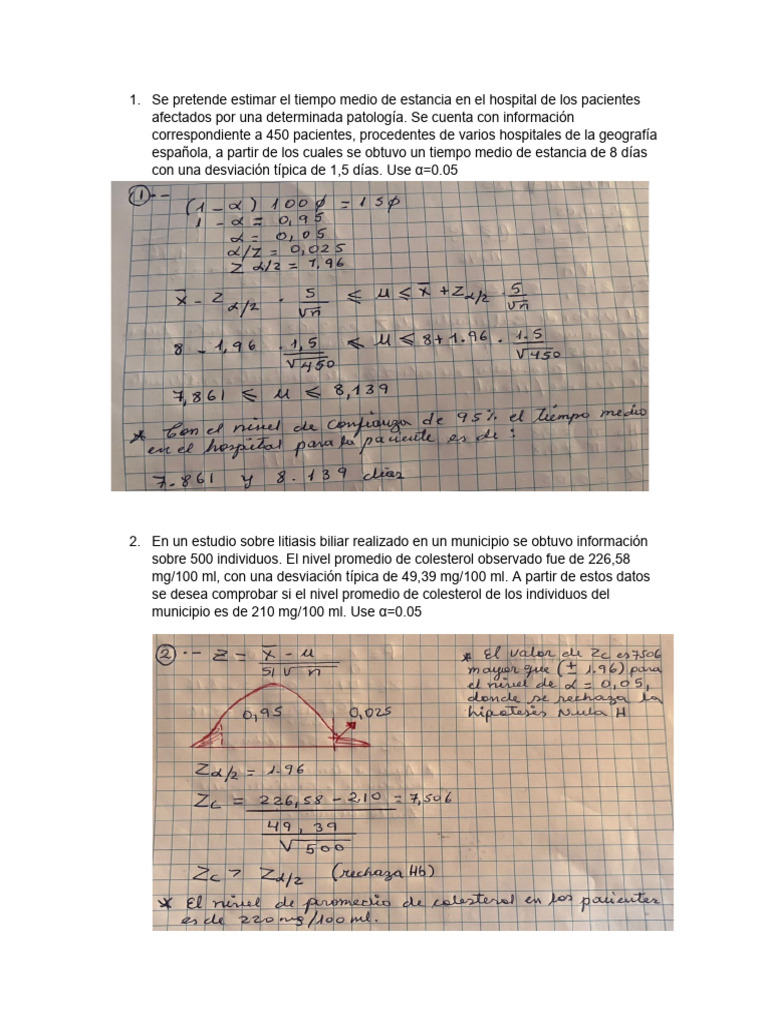 1. Se pretende estimar el tiempo medio de estancia en el hospital de los pacientes
afectados por una determinada patología. Se cuenta con información
correspondiente a 450 pacientes, procedentes de varios hospitales de la geografía
española, a partir de los cuales se obtuvo un tiempo medio de estancia de 8 días
con una desviación típica de 1,5 días. Use α=0.05
①.-- (1 - α) 100 % = 15%
1 - α = 0,95
α = 0,05
α/2 = 0,025
Z α/2 = 1,96
x̄ - Z α/2 · S/√n ≤ μ ≤ x̄ + Z α/2 · S/√n
8 - 1,96 · 1,5/√450 ≤ μ ≤ 8 + 1.96 · 1.5/√450
7,861 ≤ μ ≤ 8,139
* Con el nivel de confianza de 95% el tiempo medio
en el hospital para la paciente es de:
7.861 y 8.139 dias
2. En un estudio sobre litiasis biliar realizado en un municipio se obtuvo información
sobre 500 individuos. El nivel promedio de colesterol observado fue de 226,58
mg/100 ml, con una desviación típica de 49,39 mg/100 ml. A partir de estos datos
se desea comprobar si el nivel promedio de colesterol de los individuos del
municipio es de 210 mg/100 ml. Use α=0.05
②.-- Z = x̄ - μ / S/√n
0,95 0,025
* El valor de Zc es 7506
mayor que (± 1.96) para
el nivel de α = 0,05,
donde se rechaza la
hipotesis Nula H
Z α/2 = 1.96
Zc = 226,58 - 210 / 49,39/√500 = 7,506
Zc > Z α/2 (rechaza Hb)
* El nivel de promedio de colesterol en los pacientes
es de 220 mg/100 ml.